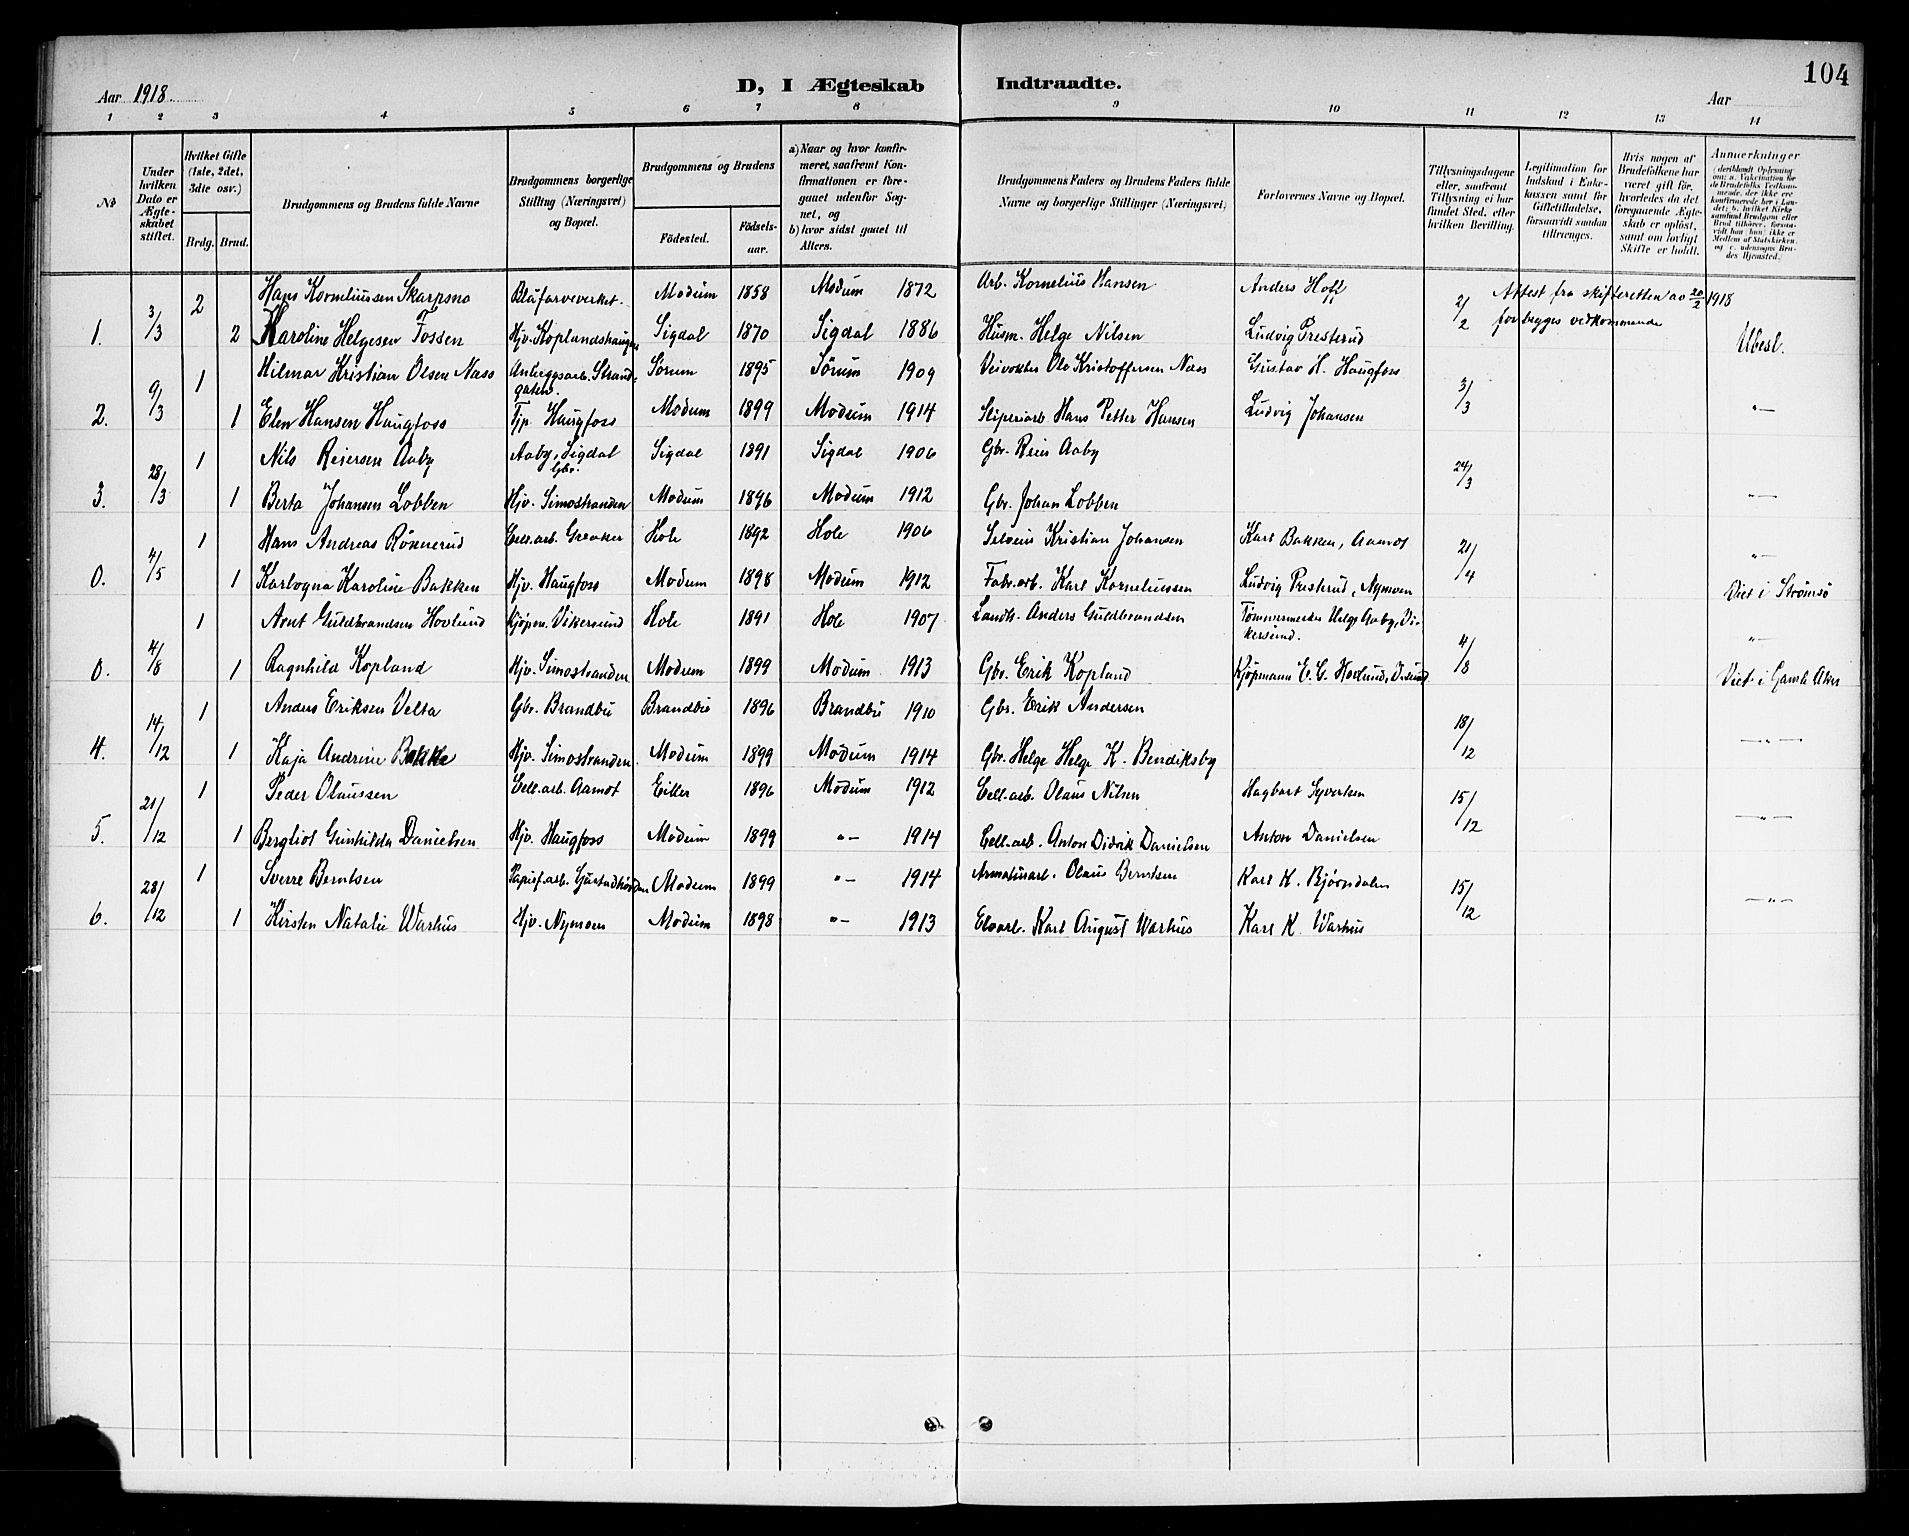 Aar 1918. D, I Ægteskab Indtraadte. Aar 104
1 2 3 4 5 6 7 8 9 10 11 12 13 14
№
Under hvilken Dato er Ægteskabet stiftet.
Hvilket Gifte (1ste, 2det, 3die osv.)
Brdg. Brud.
Brudgommens og Brudens fulde Navne
Brudgommens borgerlige Stilling (Næringsvei) og Bopæl.
Brudgommens og Brudens
Fødested. Fødselsaar.
a) Naar og hvor konfirmeret, saafremt Konfirmationen er foregaaet udenfor Sognet, og
b) hvor sidst gaaet til Alters.
Brudgommens Faders og Brudens Faders fulde Navne og borgerlige Stillinger (Næringsvei)
Forlovernes Navne og Bopæl.
Tillysningsdagene eller, saafremt Tillysning ei har fundet Sted, efter hvilken Bevilling.
Legitimation for Indskud i Enkekassen samt for Giftetilladelse, forsaavidt saadan tiltrænges.
Hvis nogen af Brudefolkene har været gift før, hvorledes da det foregaaende Ægteskab er opløst, samt om lovligt Skifte er holdt.
Anmerkninger
(deriblandt Oplysning om: a. Vakcination for de Brudefolks Vedkommende, der ikke ere konfirmerede her i Landet; b. hvilket Kirkesamfund Brudgom eller Brud tilhører, forsaavidt han (hun) ikke er Medlem af Statskirken, og c. udensogns Brudes Hjemsted.)
3/3 2 Hans Korneliussen Skarpsno Blåfarveverket. Modum 1858 Modum 1872 Arb. Kornelius Hansen Anders Hoff 2/2 Attest fra skifteretten av 20/2 1918
1. 2 Karoline Helgesen Fossen Hjv. Koplandshaugen Sigdal 1870 Sigdal 1886 Husm. Helge Nilsen Ludvig Presterud for begges vedkommende Ubesl.
9/3 1 Hilmar Kristian Olsen Næss Anleggsarb. Strandgaten. Sørum 1895 Sørum 1909 Veivokter Ole Kristoffersen Næss Gustav H. Haugfoss 3/3
2. 1 Elen Hansen Haugfoss Tjp. Haugfoss Modum 1899 Modum 1914 Sliperiarb Hans Petter Hansen Ludvig Johansen "—
28/3 1 Nils Reiersen Aaby Aaby, Sigdal Gbr. Sigdal 1891 Sigdal 1906 Gbr. Reier Aaby 24/3
3. 1 Berta Johansen Lobben Hjv. Simostranden Modum 1896 Modum 1912 Gbr. Johan Lobben "—
4/5 1 Hans Andreas Røknerud Cell. arb. Greaker Hole 1892 Hole 1906 Kristian Johansen Karl Bakken, Aamot 21/4 "—
0. 1 Karbogna Karoline Bakken Hjv. Haugfoss Modum 1898 Modum 1912 Fabr. arb. Karl Korneliussen Ludvig Presterud, Nymoen Viet i Strømsø
4/8 1 Arnt Guldbrandsen Hovlund Kjøpm. Vikersund Hole 1891 Hole 1907 Landh. Anders Guldbrandsen Tømmermester Helge Aaby, Vikersund. 4/8 "—
0. 1 Ragnhild Kopland Hjv. Simostranden Modum 1899 Modum 1913 Gbr. Erik Kopland Kjøpmann E. G. Hovlund, Viet i Gamle Aker
14/12 1 Anders Eriksen Velta Gbr. Brandbu Brandbu 1896 Brandbu 1910 Gbr. Erik Andersen 18/12
4. 1 Kaja Andrine Bakke Hjv. Simostranden Modum 1899 Modum 1914 Gbr. Helge Helge K. Bendiksby —"—
21/12 1 Peder Olaussen Cell. arb. Aamot Eiker 1896 Modum 1912 Cell. arb. Olaus Nilsen Hagbart Syvertsen 15/12
5. 1 Bergliot Gunhilda Danielsen Hjv. Haugfoss Modum 1899 "— 1914 Cell. arb. Anton Didrik Danielsen Anton Danielsen —"—
28/12 1 Sverre Berntsen Modum 1899 "— 1914 Olaus Berntsen Karl K. Bjørndalen 15/12
6. 1 Kirsten Natalie Warhus Hjv. Nymoen Modum 1898 "— 1913 Karl August Warhus Karl K. Warhus —"—